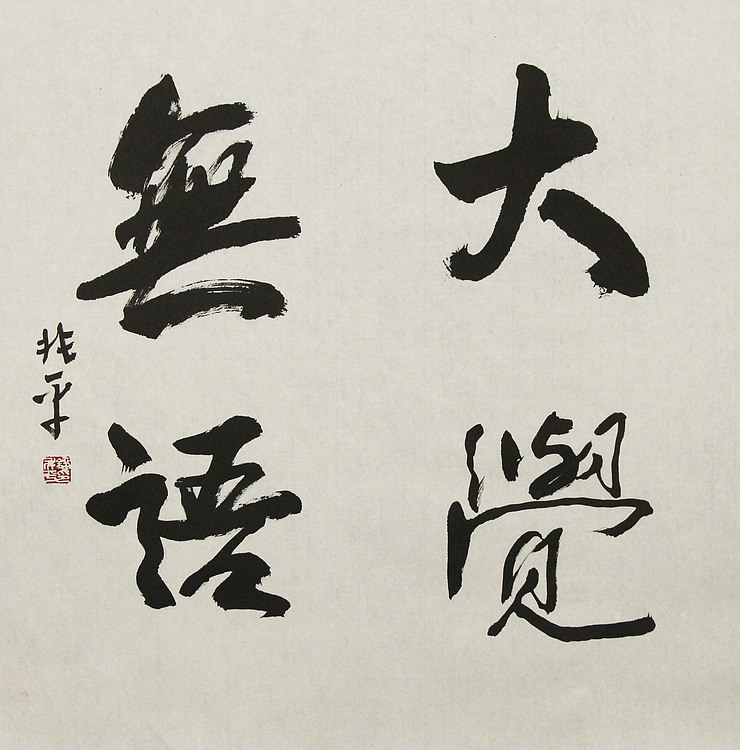 大覺
無語
平